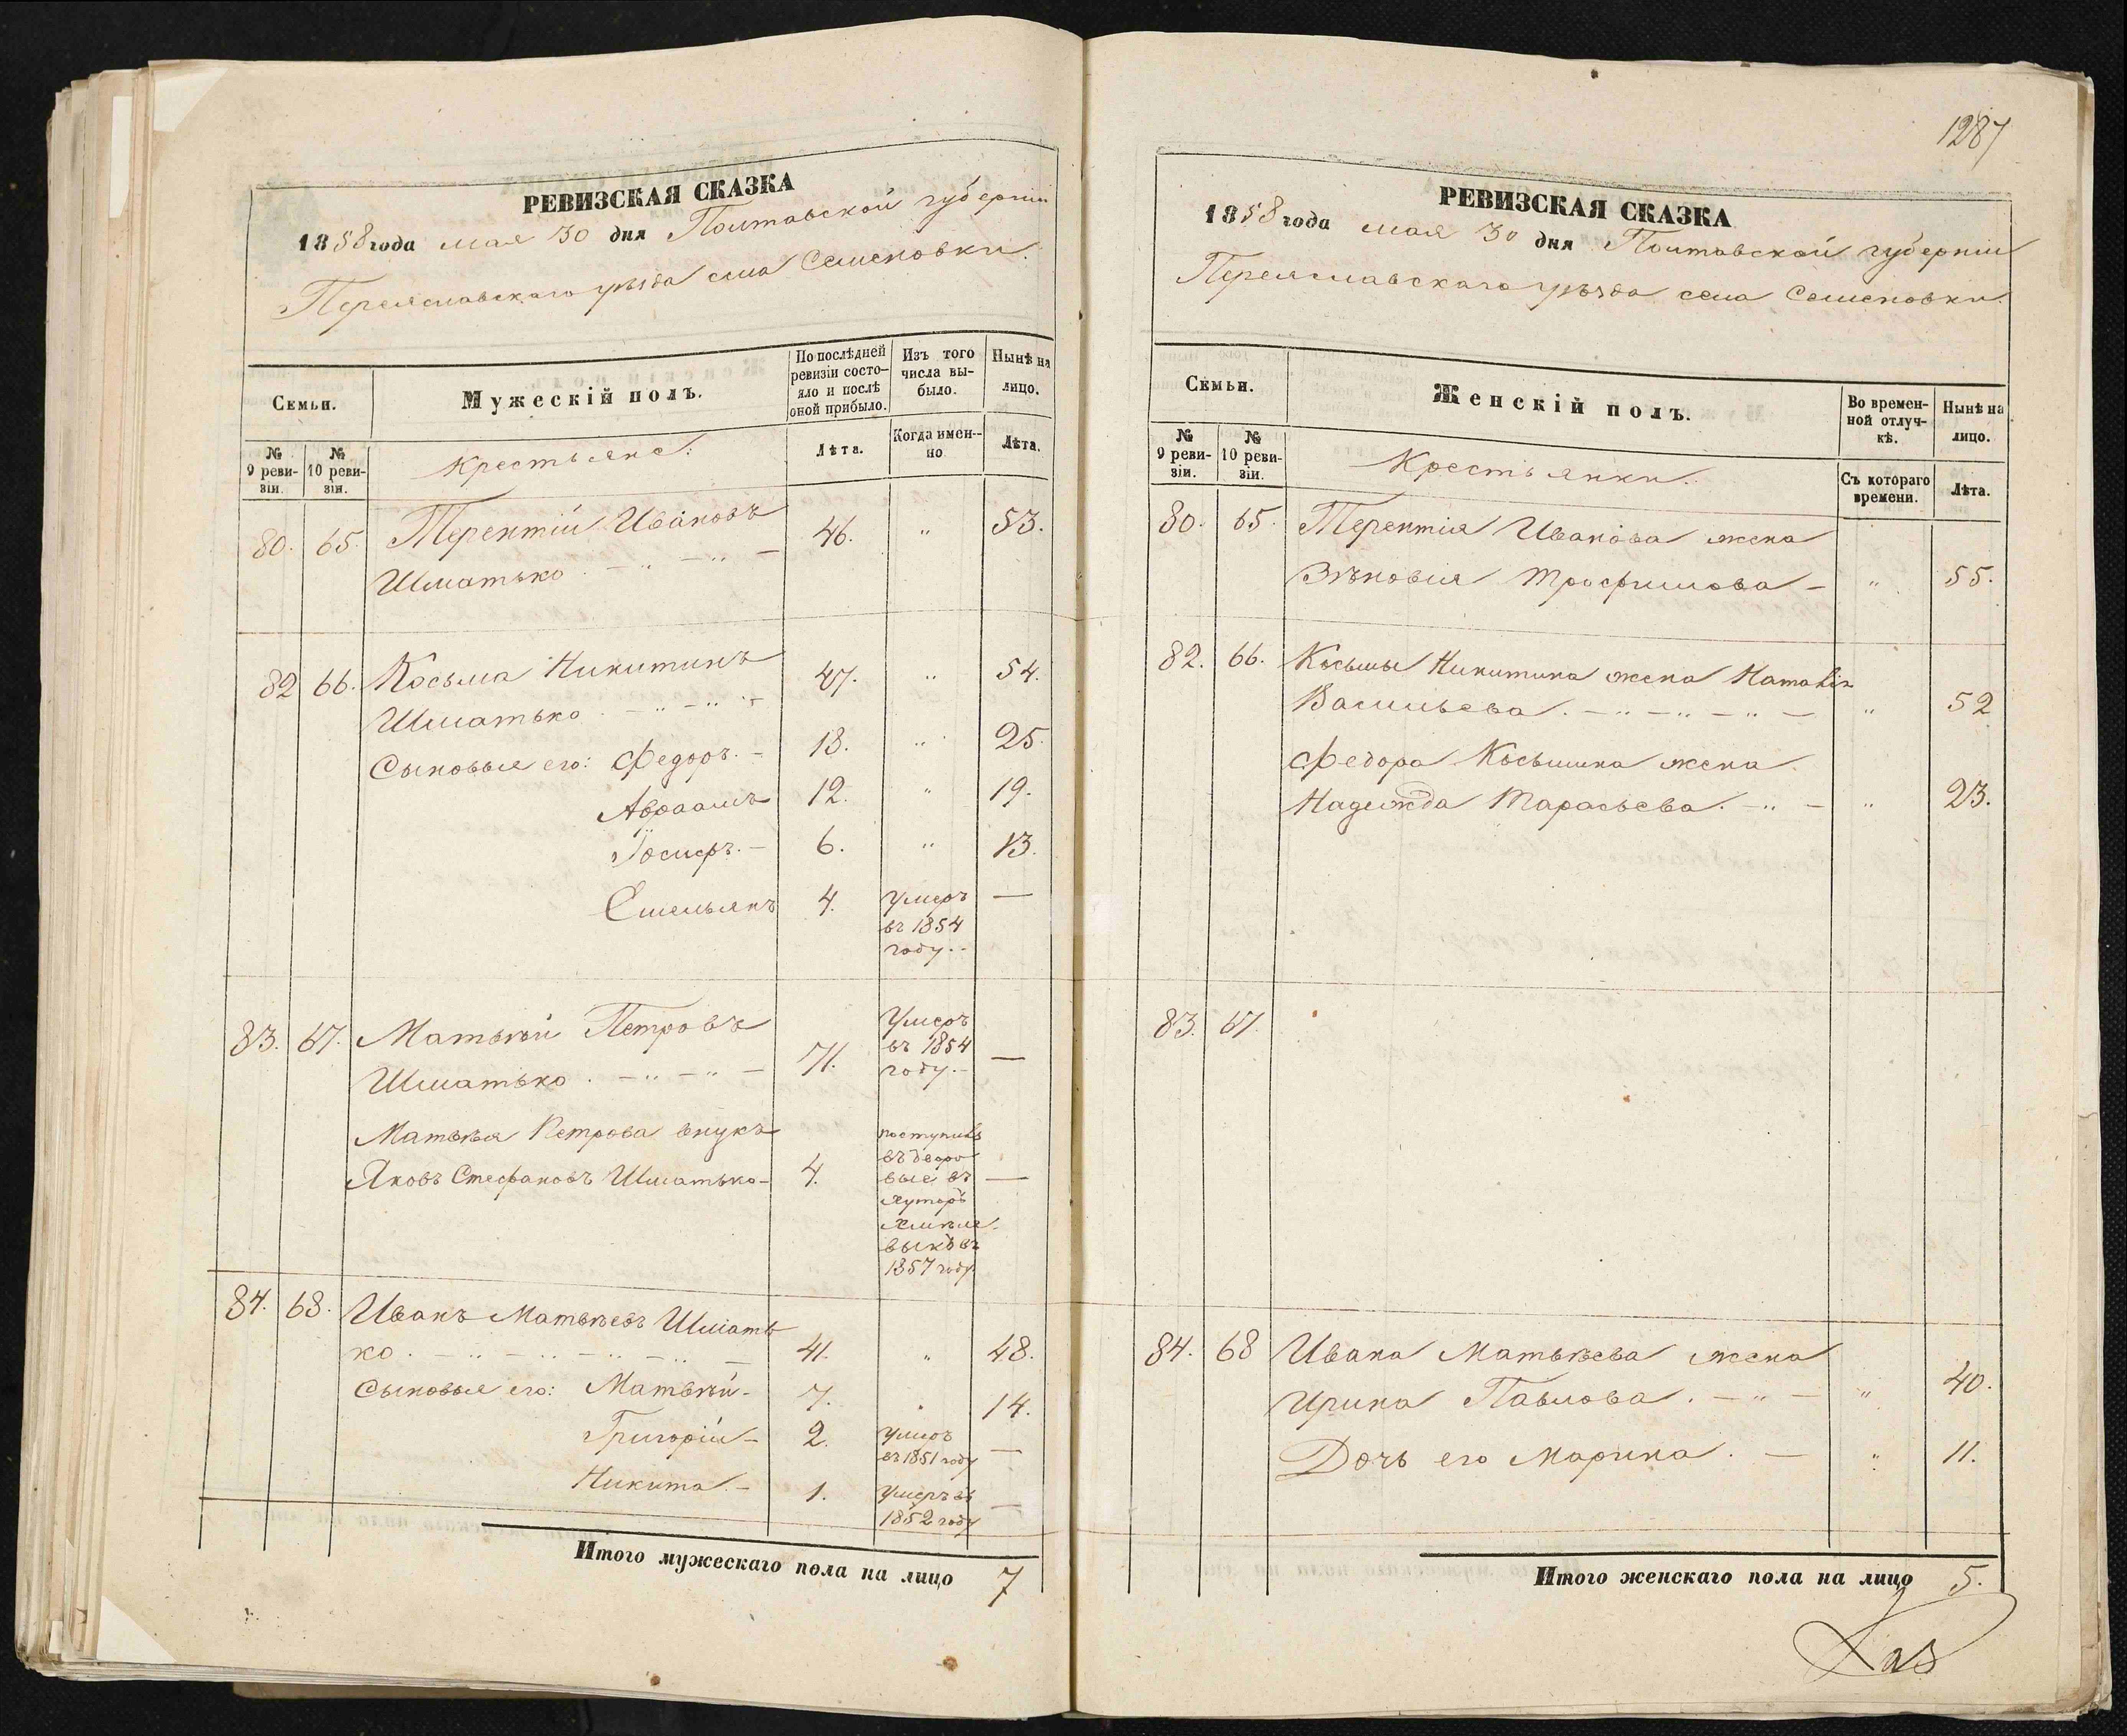 РЕВИЗСКАЯ СКАЗКА
1858 года мая 30 дня Полтавской губерніи
Переяславскаго уѣзда села Семеновки.
Семьи.
Мужескій полъ.
По послѣдней ревизіи состояло и послѣ оной прибыло.
Изъ того числа выбыло.
Нынѣ на лицо.
№ 9 ревизіи.
№ 10 ревизіи.
Крестьяне:
Лѣта.
Когда именно
Лѣта.
80. 65. Терентій Ивановъ 46. " 53.
Шматько . — " — " —
82 66. Косьма Никитинъ 47. " 54.
Шматько . — " — " —
Сыновья его: Федоръ. — 18. " 25.
Авраамъ 12. " 19.
Іосифъ. — 6. " 13.
Емельянъ 4. умеръ —
въ 1854
году. -
83. 67. Матвѣй Петровъ Умеръ
въ 1854
Шматько . — " — " — 71. году. — —
Матвѣя Петрова внукъ поступилъ
Яковъ Стефановъ Шматько — 4. —
вые въ
1857 году
84. 68. Иванъ Матвѣевъ Шмать
ко . — " — " — " — " — 41. " 48.
Сыновья его: Матвѣй — 7. " 14.
Григорій — 2. умеръ —
въ 1851 году
Никита. — 1. умеръ въ —
1852 году
Итого мужескаго пола на лицо 7
1287
РЕВИЗСКАЯ СКАЗКА
1858 года мая 30 дня Полтавской губерніи
Переяславскаго уѣзда села Семеновки.
Семьи.
Женскій полъ.
Во временной отлучкѣ.
Нынѣ на лицо.
№ 9 ревизіи.
№ 10 ревизіи.
Крестьянки.
Съ котораго времени.
Лѣта.
80. 65. Терентія Иванова жена
Зѣновія Трофимова — " 55.
82. 66. Косьмы Никитина жена Наталія
Васильева . — " — " — " — " 52
Федора Косьмина жена
Надежда Тарасьева. — " — " 23.
83. 67.
84. 68 Ивана Матвѣева жена
Ирина Павлова . — " — " 40.
Дочь его Марина . — " 11.
Итого женскаго пола на лицо 5.